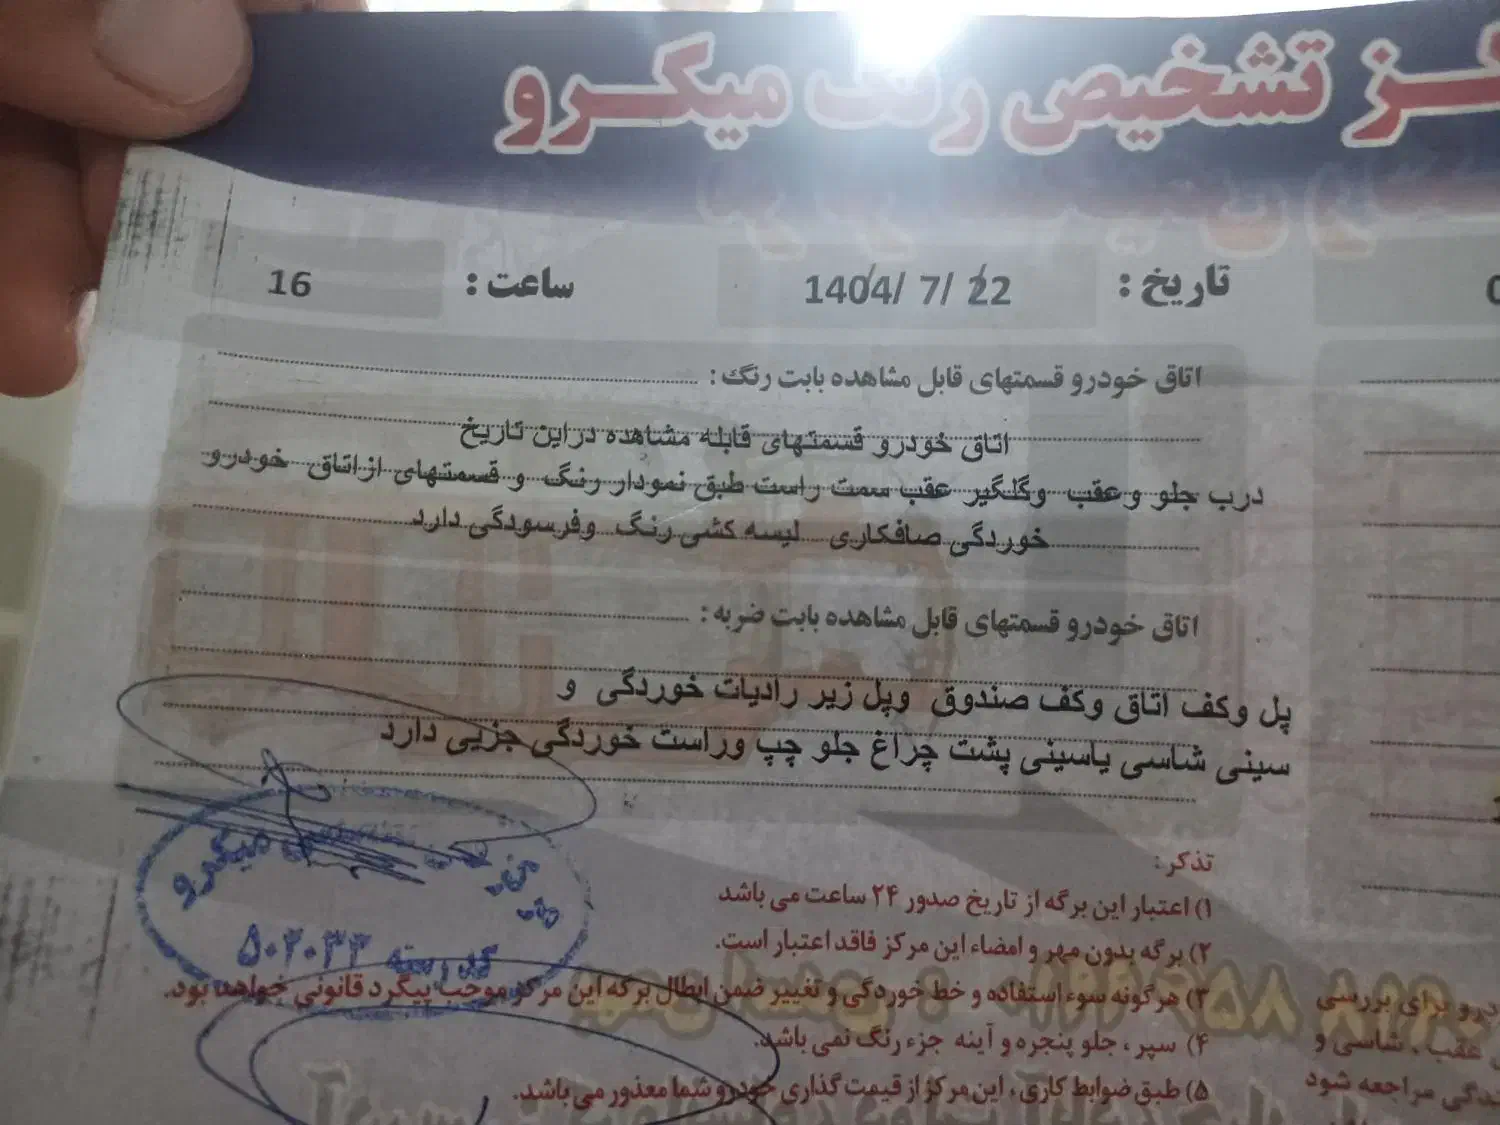 تشخیص رنگ میکرو
تاریخ : 1404/ 7/ 22
ساعت : 16
اتاق خودرو قسمتهای قابل مشاهده بابت رنگ :
اتاق خودرو قسمتهای قابله مشاهده دراین تاریخ
درب جلو و عقب وگلگیر عقب سمت راست طبق نمودار رنگ و قسمتهای ازاتاق خودرو
خوردگی صافکاری لیسه کشی رنگ وفرسودگی دارد
اتاق خودرو قسمتهای قابل مشاهده بابت ضربه :
پل وکف اتاق وکف صندوق وپل زیر رادیات خوردگی و
سینی شاسی یاسینی پشت چراغ جلو چپ وراست خوردگی جزیی دارد
میکرو
کد رسته ۵۰۲۰۳۳
تذکر :
۱) اعتبار این برگه از تاریخ صدور ۲۴ ساعت می باشد
۲) برگه بدون مهر و امضاء این مرکز فاقد اعتبار است.
۳) هرگونه سوء استفاده و خط خوردگی و تغییر ضمن ابطال برگه این مرکز موجب پیگرد قانونی خواهد بود.
۴) سپر ، جلو پنجره و آینه جزء رنگ نمی باشد.
۵) طبق ضوابط کاری ، این مرکز از قیمت گذاری خودرو شما معذور می باشد.
برای بررسی
عقب ، شاسی و
مراجعه شود